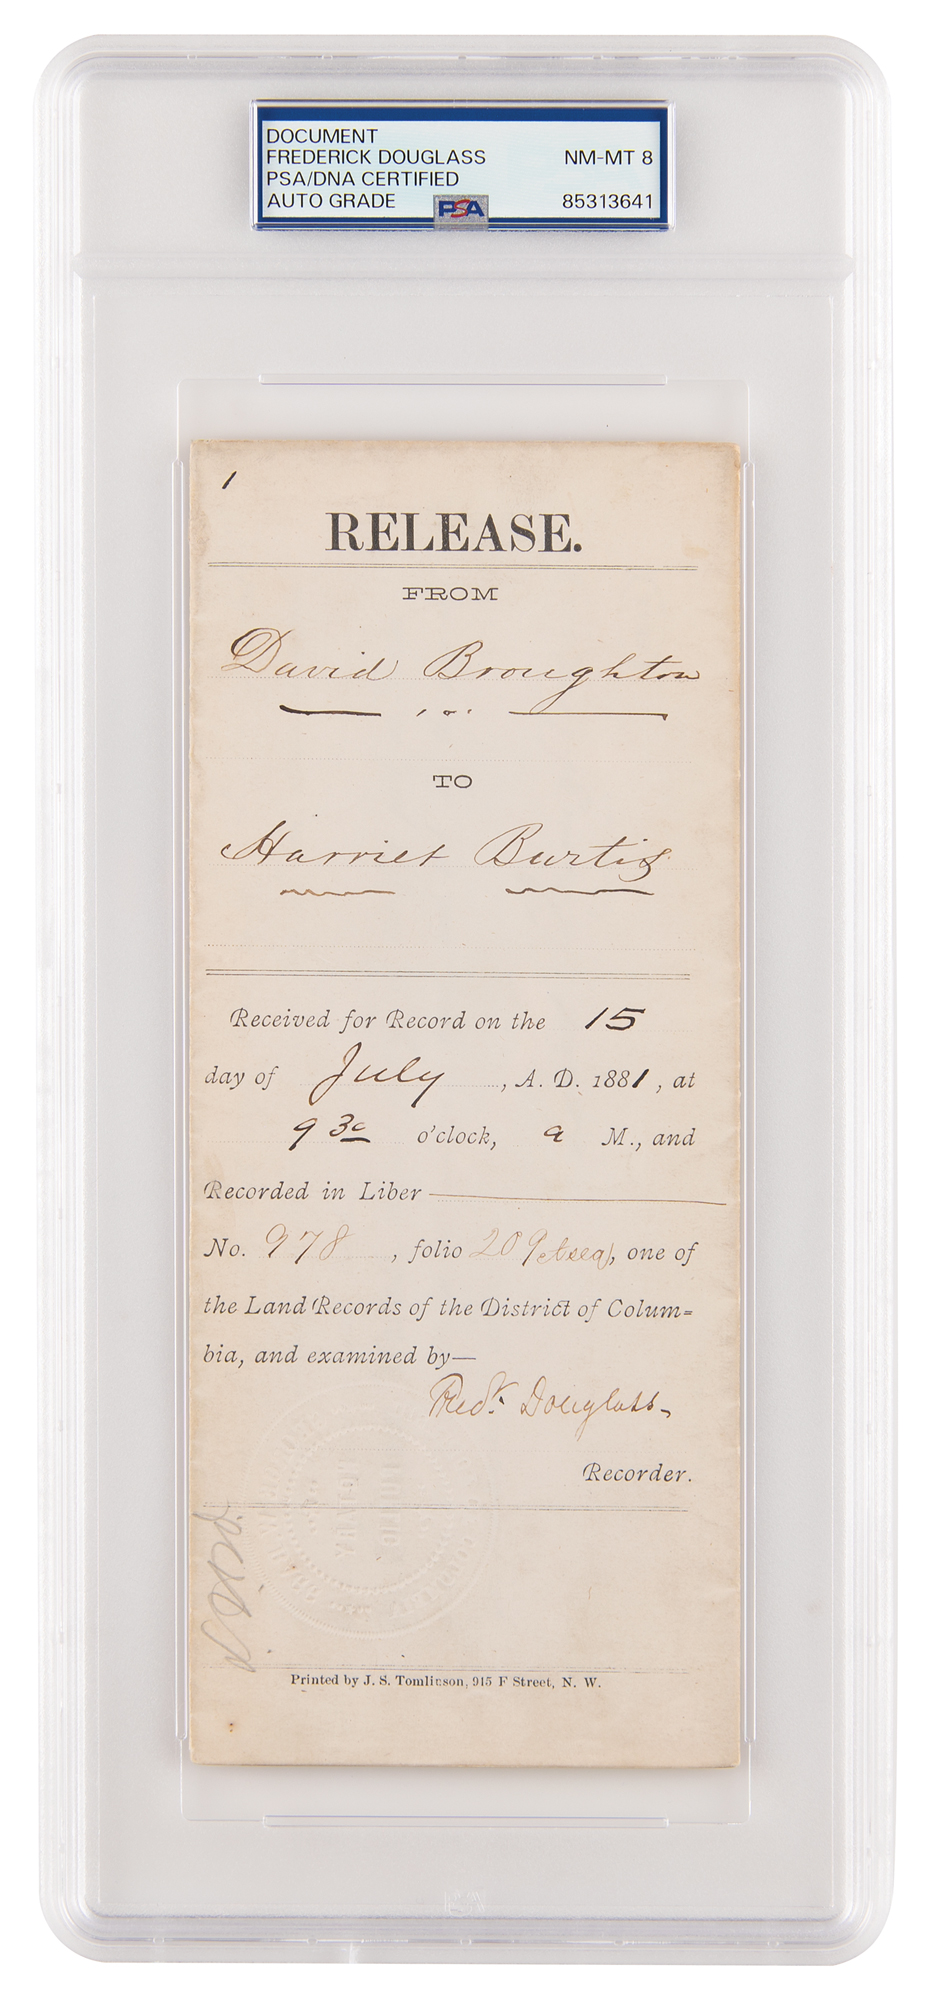 DOCUMENT
FREDERICK DOUGLASS NM-MT 8
PSA/DNA CERTIFIED
AUTO GRADE PSA 85313641
1
RELEASE.
FROM
David Broughton
TO
Harriet Burtis
Received for Record on the 15
day of July, A. D. 1881, at
9 30 o'clock, a M., and
Recorded in Liber
No. 978, folio 209 et seq, one of
the Land Records of the District of Colum=
bia, and examined by—
Fredk. Douglass
Recorder.
NOTARY
PUBLIC
Printed by J. S. Tomlinson, 915 F Street, N. W.